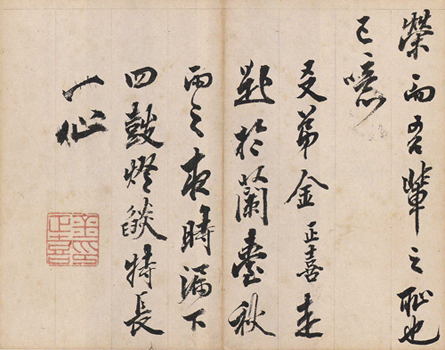 榮而吾輩之恥也
已噫
友弟金正喜走
題於蘭臺秋
雨之夜時漏下
四鼓燈燄特長
一灺
金正喜印